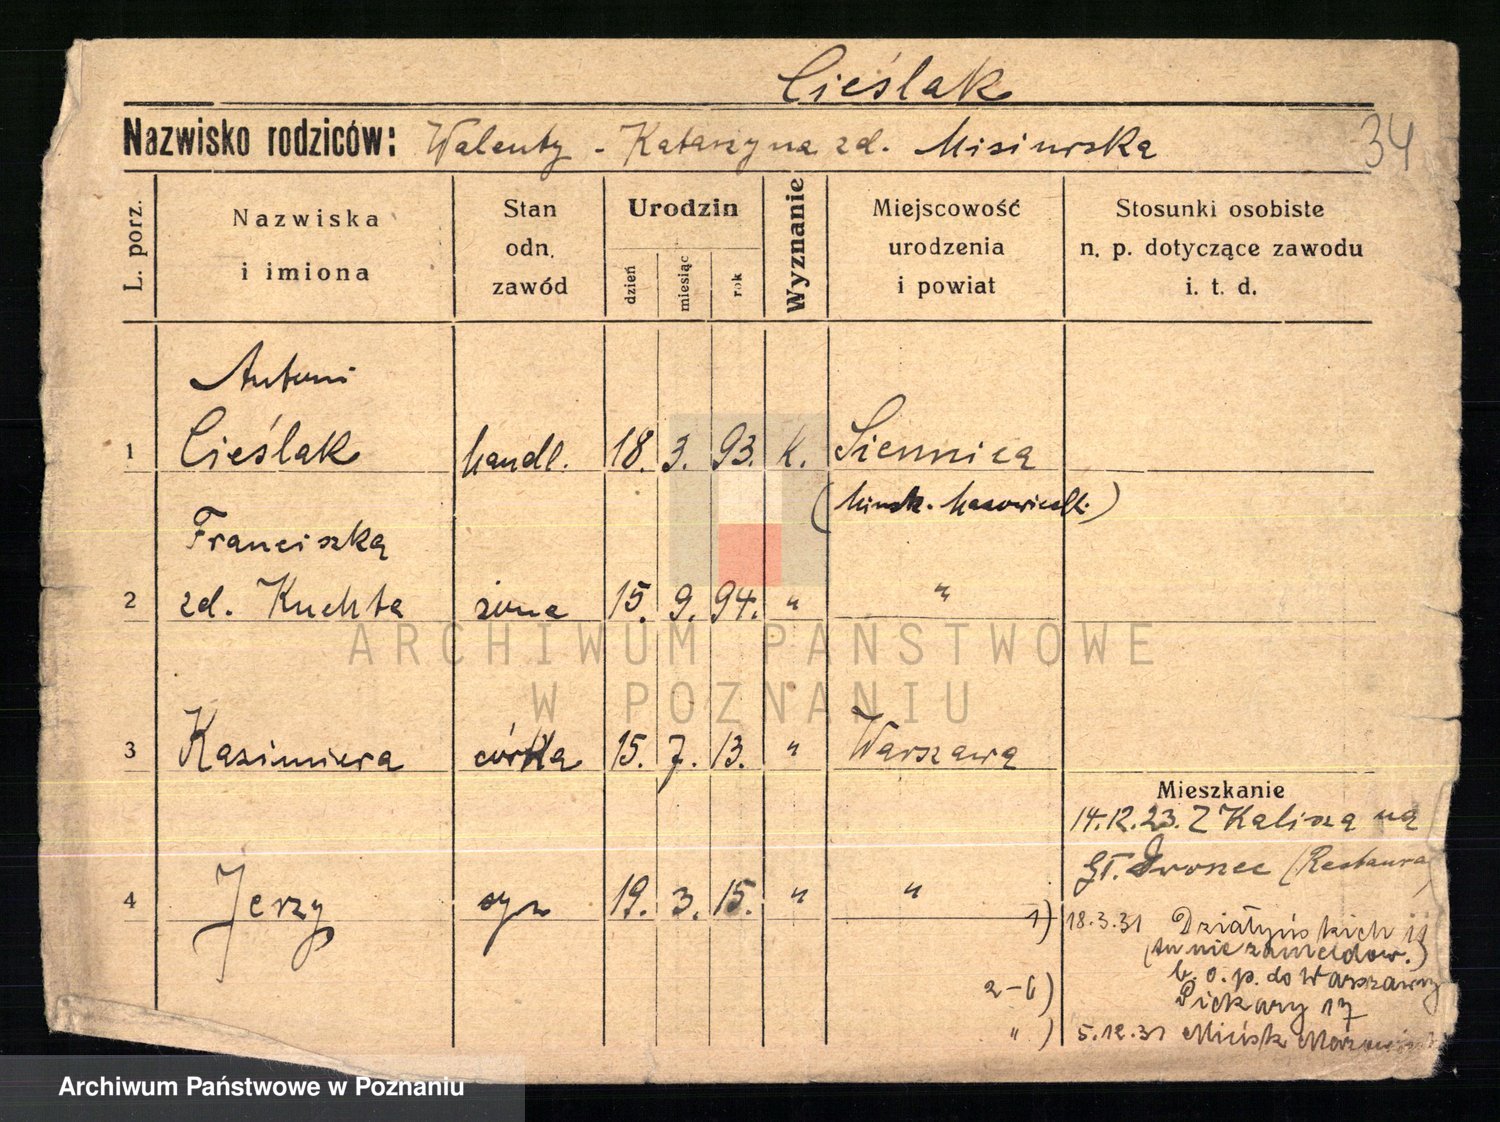 Cieślak
Nazwisko rodziców: Walenty - Katarzyna zd. Misiurska
34
L. porz.
Nazwiska
i imiona
Stan
odn.
zawód
Urodzin
dzień
miesiąc
rok
Wyznanie
Miejscowość
urodzenia
i powiat
Stosunki osobiste
n. p. dotyczące zawodu
i. t. d.
Antoni
1 Cieślak handl. 18. 3. 93. K. Siennica
(Minsk. Mazowieck.)
Franciszka
2 zd. Kuchta żona 15. 9. 94. " "
ARCHIWUM PAŃSTWOWE
W POZNANIU
3 Kazimiera córka 15. 7. 13. " Warszawa
Mieszkanie
14.12.23. Z Kalisza na
(Restaura
4 Jerzy syn 19. 3. 15. " "
1) 18.3.31 Działyńskich 11
(tu nie zameldow.)
b. o. p. do Warszawy
2-6) Piekary 17
" ) 5.12.31 Mińsk Mazowiecki
Archiwum Państwowe w Poznaniu